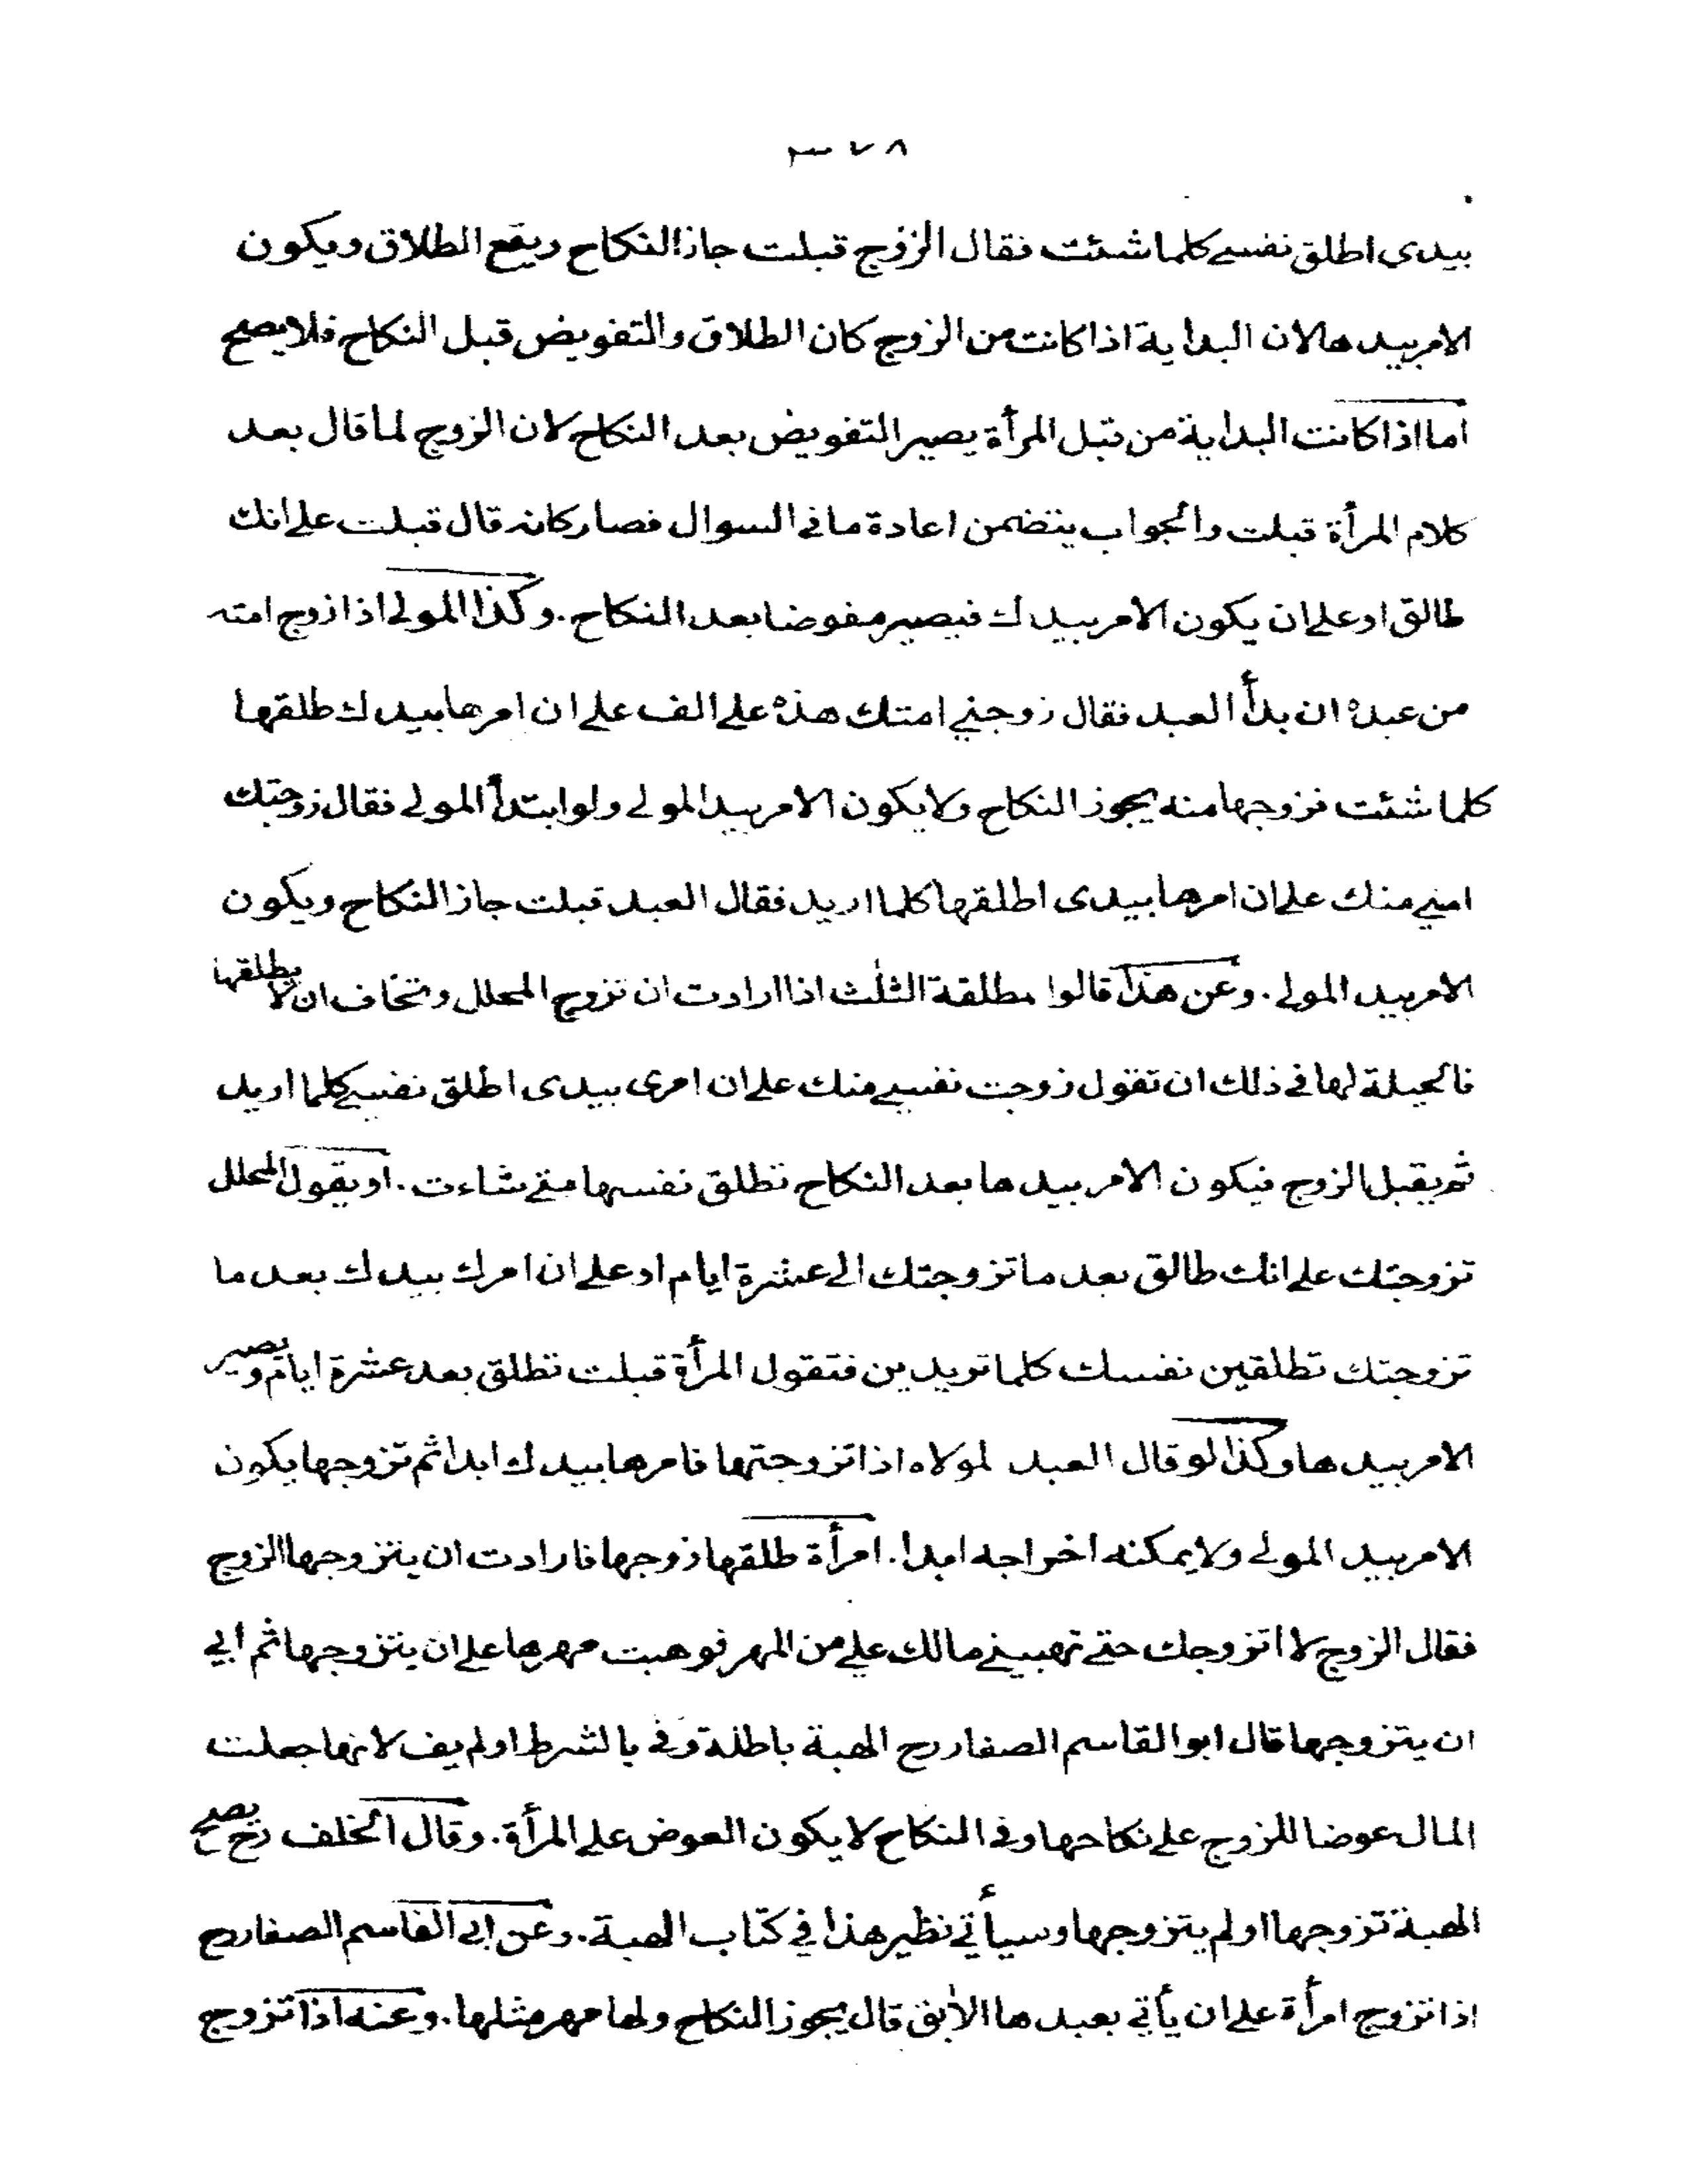 ٣٧٨
بيدى اطلق نفسے كلما شئت فقال الزوج قبلت جاز النكاح ويقع الطلاق ويكون
الامر بيدها لان البداية اذا كانت من الزوج كان الطلاق والتفويض قبل النكاح فلا يصح
اما اذا كانت البداية من قبل المرأة يصير التفويض بعد النكاح لان الزوج لما قال بعد
كلام المرأة قبلت والجواب يتضمن اعادة ما فى السوال فصار كانه قال قبلت علے انك
طالق او علے ان يكون الامر بيدك فيصير مفوضا بعد النكاح . وكذا المولے اذا زوج امته
من عبده ان بدأ العبد فقال زوجنے امتك هذه علے الف علے ان امرها بيدك طلقها
كلما شئت فزوجها منه يجوز النكاح ولا يكون الامر بيد المولے ولو ابتدأ المولے فقال زوجتك
امتے منك علے ان امرها بيدى اطلقها كلما اريد فقال العبد قبلت جاز النكاح ويكون
الامر بيد المولے . وعن هذا قالوا مطلقة الثلٰث اذا ارادت ان تزوج المحلل وتخاف ان لا يطلقها
فالحيلة لها فے ذلك ان تقول زوجت نفسے منك علے ان امرى بيدى اطلق نفسے كلما اريد
ثم يقبل الزوج فيكون الامر بيدها بعد النكاح تطلق نفسها متے شاءت . او يقول المحلل
تزوجتك علے انك طالق بعد ما تزوجتك الے عشرة ايام او علے ان امرك بيدك بعد ما
تزوجتك تطلقين نفسك كلما تريدين فتقول المرأة قبلت تطلق بعد عشرة ايام ويصير
الامر بيدها وكذا لو قال العبد لمولاه اذا تزوجتها فامرها بيدك ابدا ثم تزوجها يكون
الامر بيد المولے ولا يمكنه اخراجه ابدا . امرأة طلقها زوجها فارادت ان يتزوجها الزوج
فقال الزوج لا اتزوجك حتے تهبينے مالك علے من المهر فوهبت مهرها علے ان يتزوجها ثم ابے
ان يتزوجها قال ابو القاسم الصفار رح الهبة باطلة وفى بالشرط او لم يف لانها جعلت
المال عوضا للزوج علے نكاحها وفى النكاح لا يكون العوض علے المرأة . وقال الخلف رح يصح
الهبة تزوجها او لم يتزوجها وسيأتے نظير هذا فے كتاب الهبة . وعن ابے القاسم الصفار رح
اذا تزوج امرأة علے ان يأتے بعبدها الاٰبق قال يجوز النكاح ولها مهر مثلها . وعنه اذا تزوج